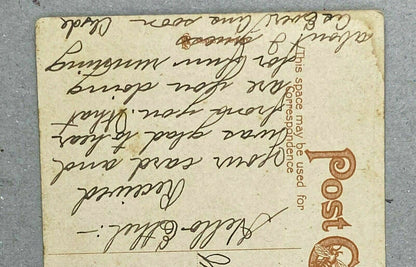 Post C
This space may be used for
Correspondence
Hello Ethel:-
Received
your card and
was glad to hear
from you. What
are you doing
for fun running
about I guess
as Ever Ans soon Clyde